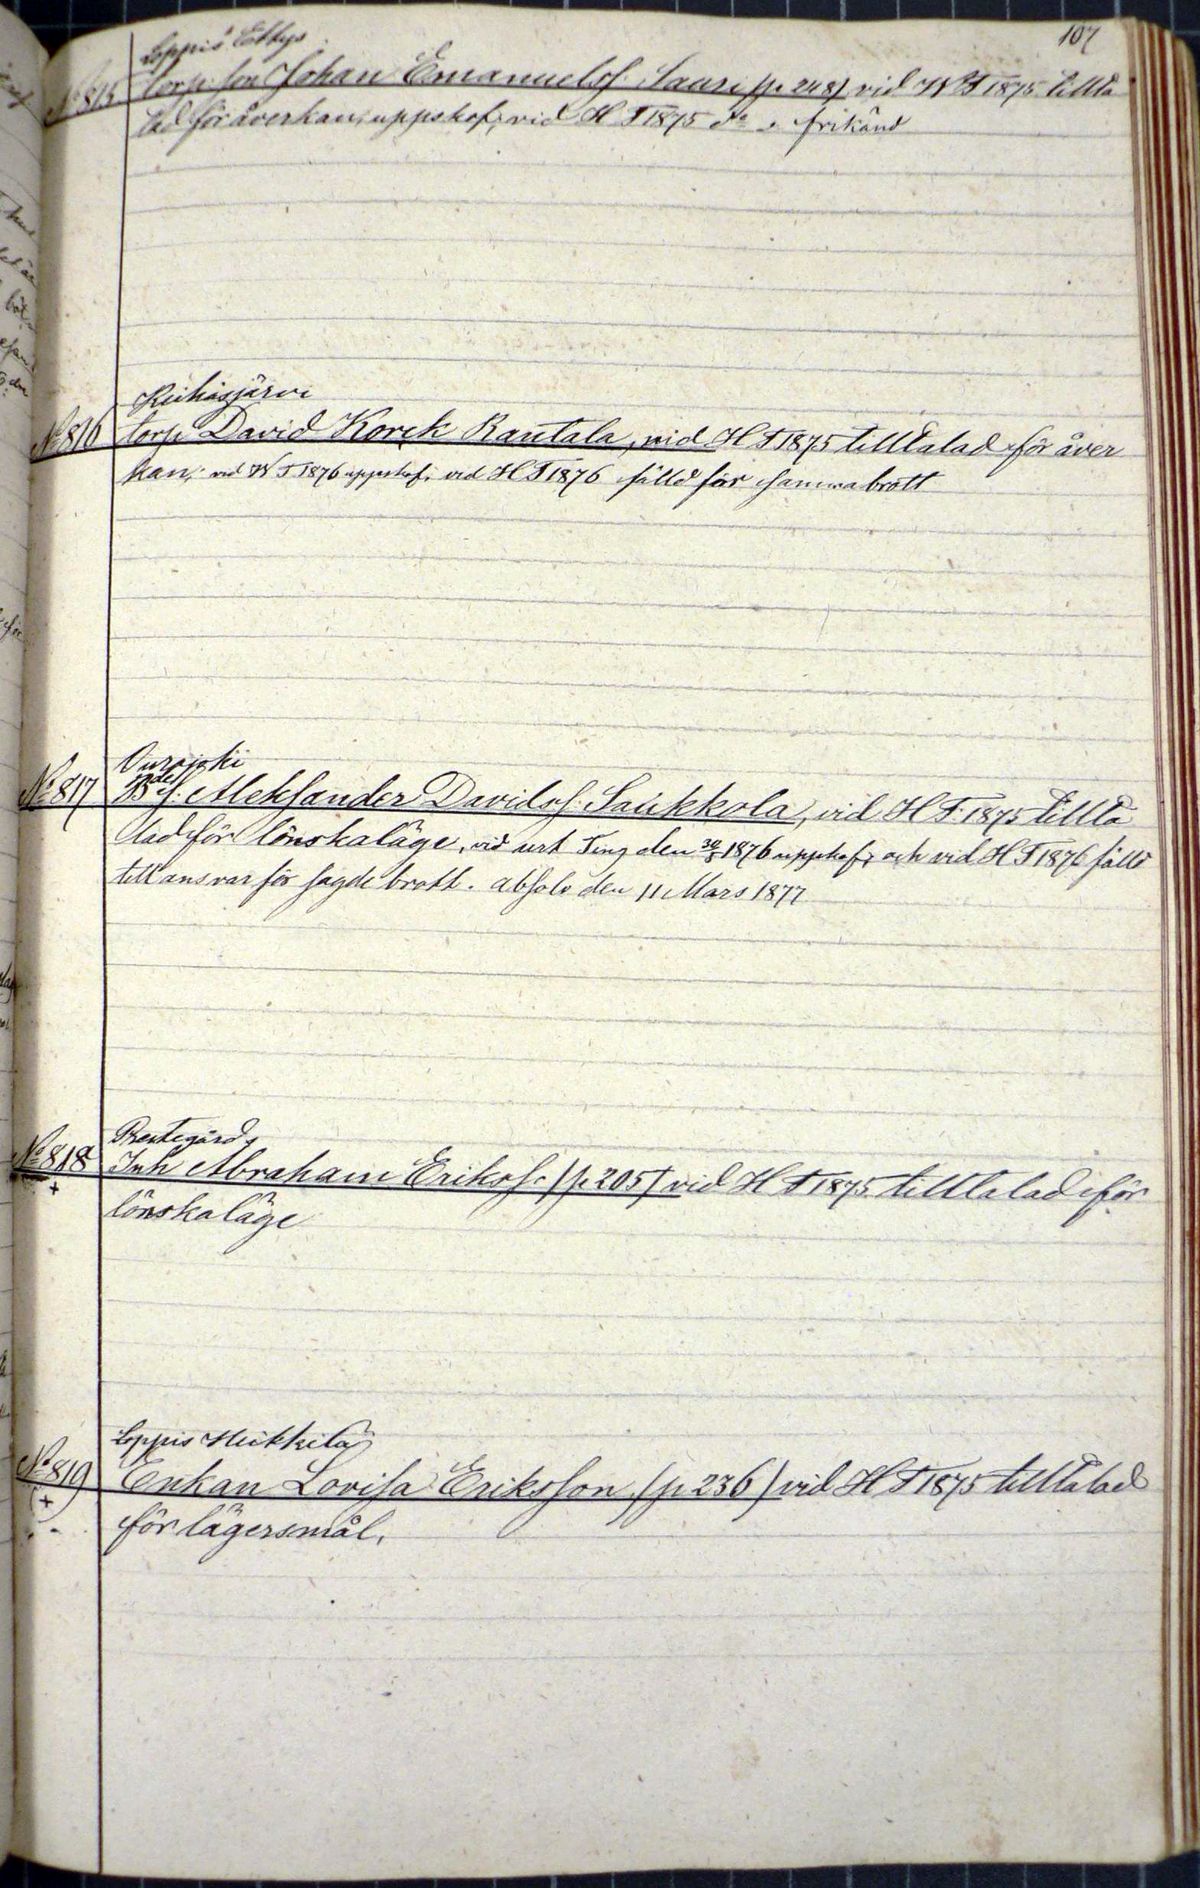 107
Loppis Ettys
No 815 Torp. son Johan Emanuelss. Saari (p. 248) vid W T 1875 tillta
lad för åverkan; uppskof; vid H T 1875 do " frikänd
Reihasjärvi
No 816 Torp. David Korck Rautala, vid H T 1875 tilltalad för åver
kan; vid W T 1876 uppskof; vid H T 1876 fälld för samma brott
Ourajoki
No 817 Bdes. Aleksander Davidss. Saukkola, vid H T 1875 tillta
lad för lönskaläge, vid urt Ting den 30/5 1876 uppskof; och vid H T 1876 fälld
till ansvar för sagde brott. absolv den 11 Mars 1877
Prestegårds
No 818 Inh Abraham Erikss. (p. 205) vid H T 1875 tilltalad för
+ lönskaläge
Loppis Heikkilä
No 819 Enkan Lovisa Eriksson (p. 236) vid H T 1875 tilltalad
(+) för lägersmål.